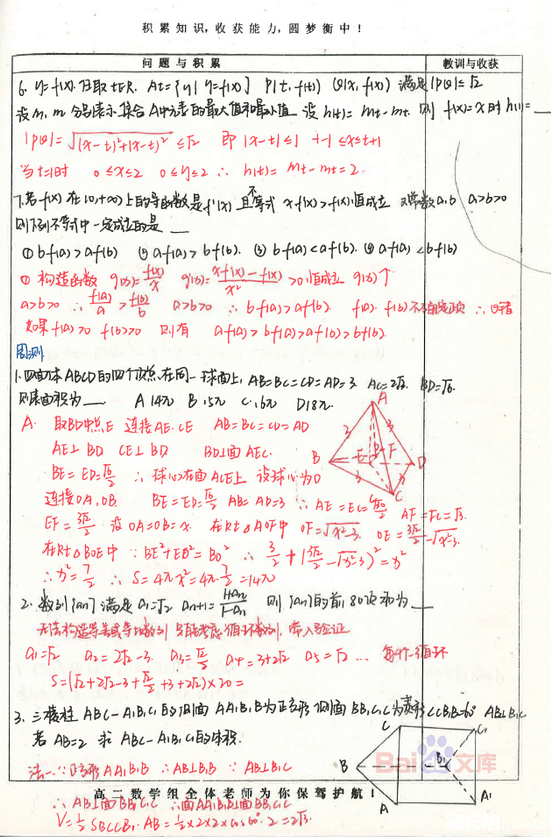 积累知识,收获能力,圆梦衡中!
问题与积累 教训与收获
6. y=f(x). 任取 t∈R. At={y| y=f(x)} P(t, f(t)) Q(x, f(x)) 满足|PQ|≤√2
设 Mt, mt 分别表示集合A中元素的最大值和最小值 设 h(t)= Mt-mt. 则 f(x)=x 时 h(1)=
|PQ|=√((x-t)²+(x-t)²)≤√2 即 |x-t|≤1 t-1≤x≤t+1
当t=1时 0≤x≤2 0≤y≤2 ∴ h(t)= Mt-mt=2.
7.若f(x)在(0,+∞)上的导函数是f'(x) 且不等式 xf'(x)>f(x)恒成立 又常数a.b a>b>0
则下列不等式中一定成立的是
① bf(a)>af(b) ② af(a)>bf(b). ③ bf(a)<af(b). ④ af(a)<bf(b)
① 构造函数 g(x)=f(x)/x g'(x)=(xf'(x)-f(x))/x² >0恒成立 g(x)↑
a>b>0 ∴ f(a)/a > f(b)/b a>b>0 ∴ bf(a)>af(b). f(a). f(b)
如果f(a)>0 f(b)>0 则有 af(a)>bf(a)>af(b)>bf(b)
周测
1.四面体ABCD的四个顶点在同一球面上, AB=BC=CD=AD=3 AC=2√3. BD=√6.
则表面积为 A 14π B.15π C.16π D18π.
A. 取BD中点E 连接AE.CE AB=BC=CD=AD
AE⊥BD CE⊥BD BD⊥面AEC.
BE=ED=√6/2 ∴球心在面ACE上 设球心为O
连接OA,OB. BE=ED=√6/2 AB=AD=3 ∴ AE=EC=√30/2 AF=FC=√3.
EF=3√2/2 设OA=OB=x. 在Rt△AOF中 OF=√(x²-3). OE=3√2/2-√(x²-3)
在Rt△BOE中: BE²+EO²=BO² ∴ 3/2+(3√2/2-√(x²-3))²=x²
∴x²=7/2 ∴ S=4πx²=4π·7/2=14π
A
B
E
F
D
C
3
3
3
2.数列{an}满足a1=√2 an+1=(1+an)/(1-an) 则{an}的前80项和为
无法构造等差或等比数列 只能考虑循环数列,带入验证
a1=√2 a2=-2√2-3. a3=-√2/2 a4=3-2√2 a5=√2 … 每4个一循环
3. 三棱柱ABC-A1B1C1的侧面AA1B1B为正方形 侧面BB1C1C为菱形 ∠CBB1=60° AB⊥B1C
若AB=2 求ABC-A1B1C1的体积.
法一:∵正方形AA1B1B ∴AB⊥B1B ∵AB⊥B1C
∴AB⊥面BB1C1C ∴面AA1B1B⊥面BB1C1C
C
C1
B
B1
A
A1
Bai 文库
高二数学组全体老师为你保驾护航!